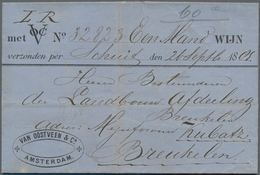 I R 60
met V Nº 32823 Een Mand WIJN
verzonden per Schuit den 26 Septb. 18
Heeren Bestuurderen
der Landbouw Afdeeling
Breukelen
Adres Mynheer
Breukelen
VAN OOSTVEEN & Co.
AMSTERDAM.